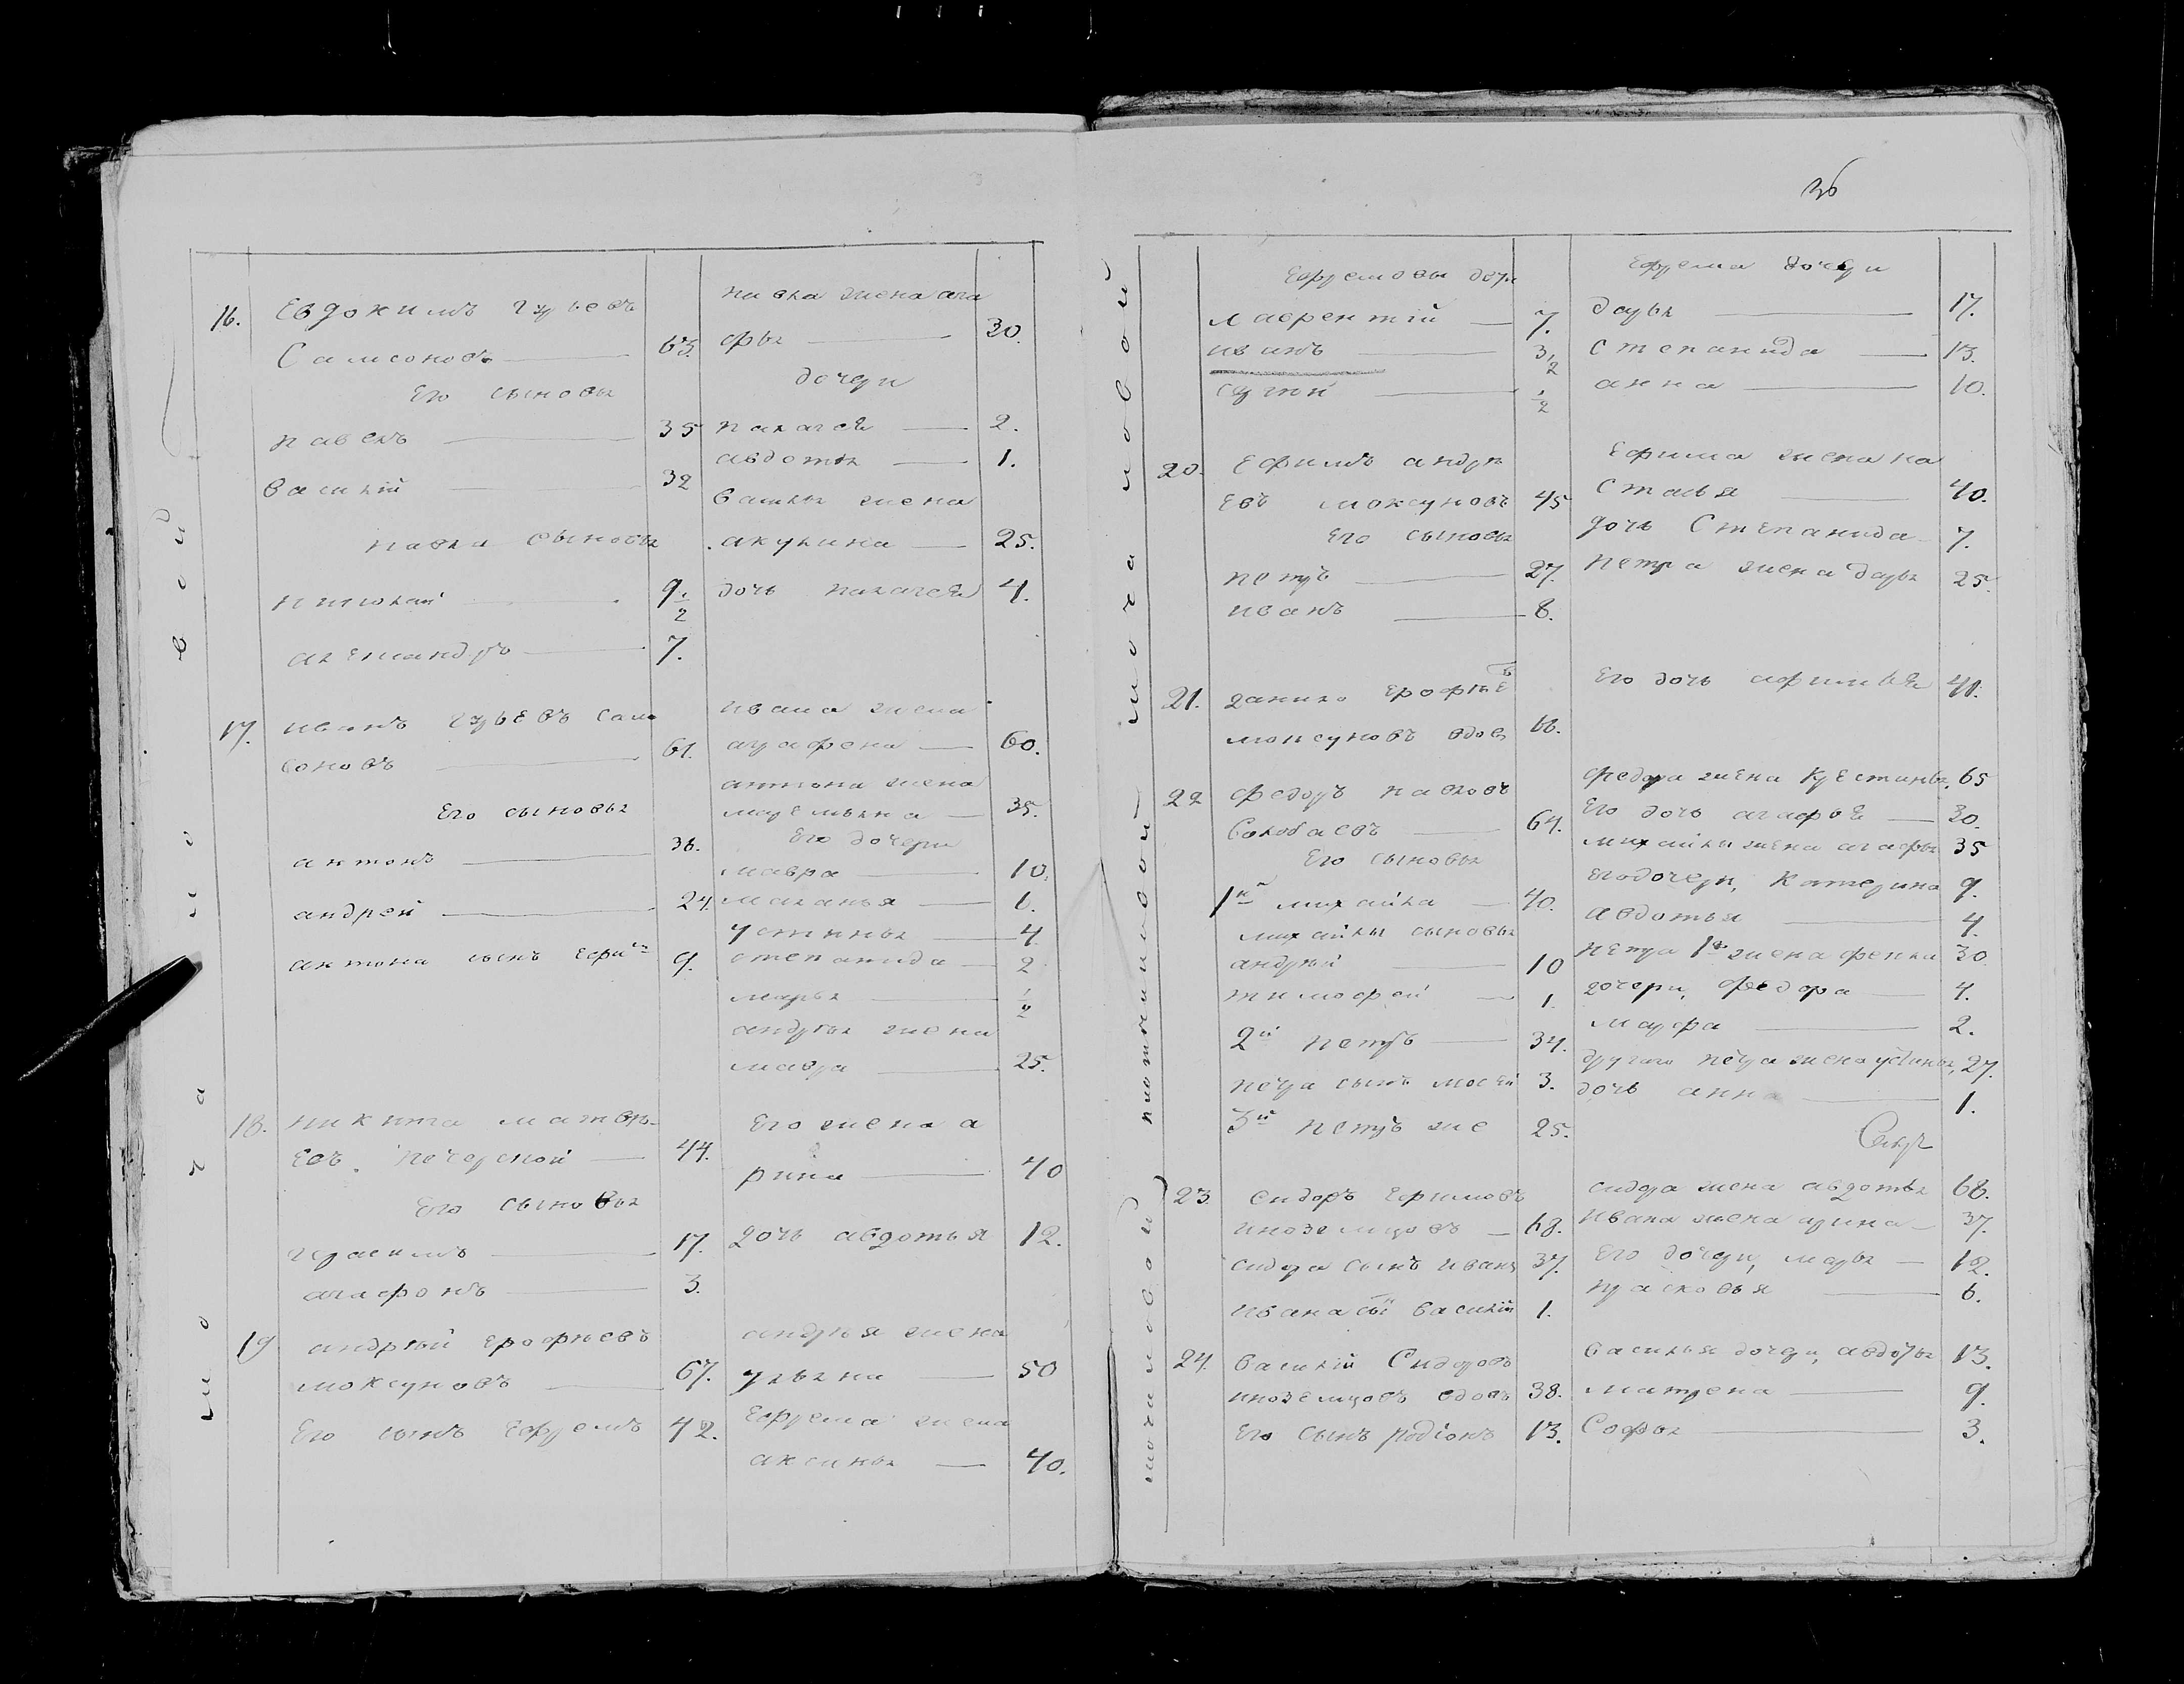 16. Евдокимъ гурьевъ
Самсоновъ — 63.
Его сыновья
павелъ — 35
василій — 32
павла сыновья
николай — 9 1/2
александръ — 7.
17. иванъ гурьевъ сам
соновъ — 61.
Его сыновья
антонъ — 36.
андрей — 24.
антона сынъ ефи 9.
18. никита матвѣ
евъ печерской — 44.
Его сыновья
герасимъ — 17.
агафонъ — 3.
19 андрѣй ерофѣевъ
моксуновъ — 67.
Его сынъ Ефремъ 42.
павла жена ага
фья — 30.
дочери
палагея — 2.
авдотья — 1.
василья жена
акулина — 25.
дочь палагея 4.
ивана жена
аграфена — 60.
антона жена
маремьяна — 35.
Его дочери
мавра — 10.
маланья — 6.
устинья — 4
степанида — 2
марья — 1/2
андрѣя жена
мавра — 25.
Его жена а
рина — 40
дочь авдотья 12.
андрѣя жена
ульяна — 50
Ефрема жена
аксинья — 40.
36
Ефремовы дети
лаврентій — 7.
иванъ — 3 1/2
сергѣй — 1/2
20. Ефимъ андрѣ
евъ моксуновъ 45
Его сыновья
петръ — 27.
иванъ — 8.
21. данило ерофѣевъ
моксуновъ вдов 66.
22 федоръ павловъ
Солобаевъ — 64.
Его сыновья
1й михайла — 40.
михайлы сыновья
андрѣй — 10
тимофей — 1.
2й петръ — 34.
петра сынъ мосѣй 3.
3й петръ же 25.
23. сидоръ Ефимовъ
иноземцовъ — 68.
сидора сынъ иванъ 37.
ивана сы василій 1.
24. василій Сидоровъ
иноземцовъ вдовъ 38.
Его сынъ родіонъ 13.
Ефрема дочери
дарья — 17.
степанида — 13.
анна — 10.
Ефима жена на
стасья — 40.
дочь Степанида 7.
петра жена дарья 25.
Его дочь афимья 41.
федора жена крестинья, 65
Его дочь агафья — 30.
михайлы жена агафья 35
его дочери, катерина 9.
авдотья — 4.
петра 1го жена фекла 30
дочери, федора — 4.
марфа — 2.
другаго петра жена устинья, 27.
дочь анна — 1.
сидора жена авдотья 68.
ивана жена арина — 37.
Его дочери, марья — 12.
прасковья — 6.
василья дочери, авдотья 13.
матрена — 9.
Софья — 3.